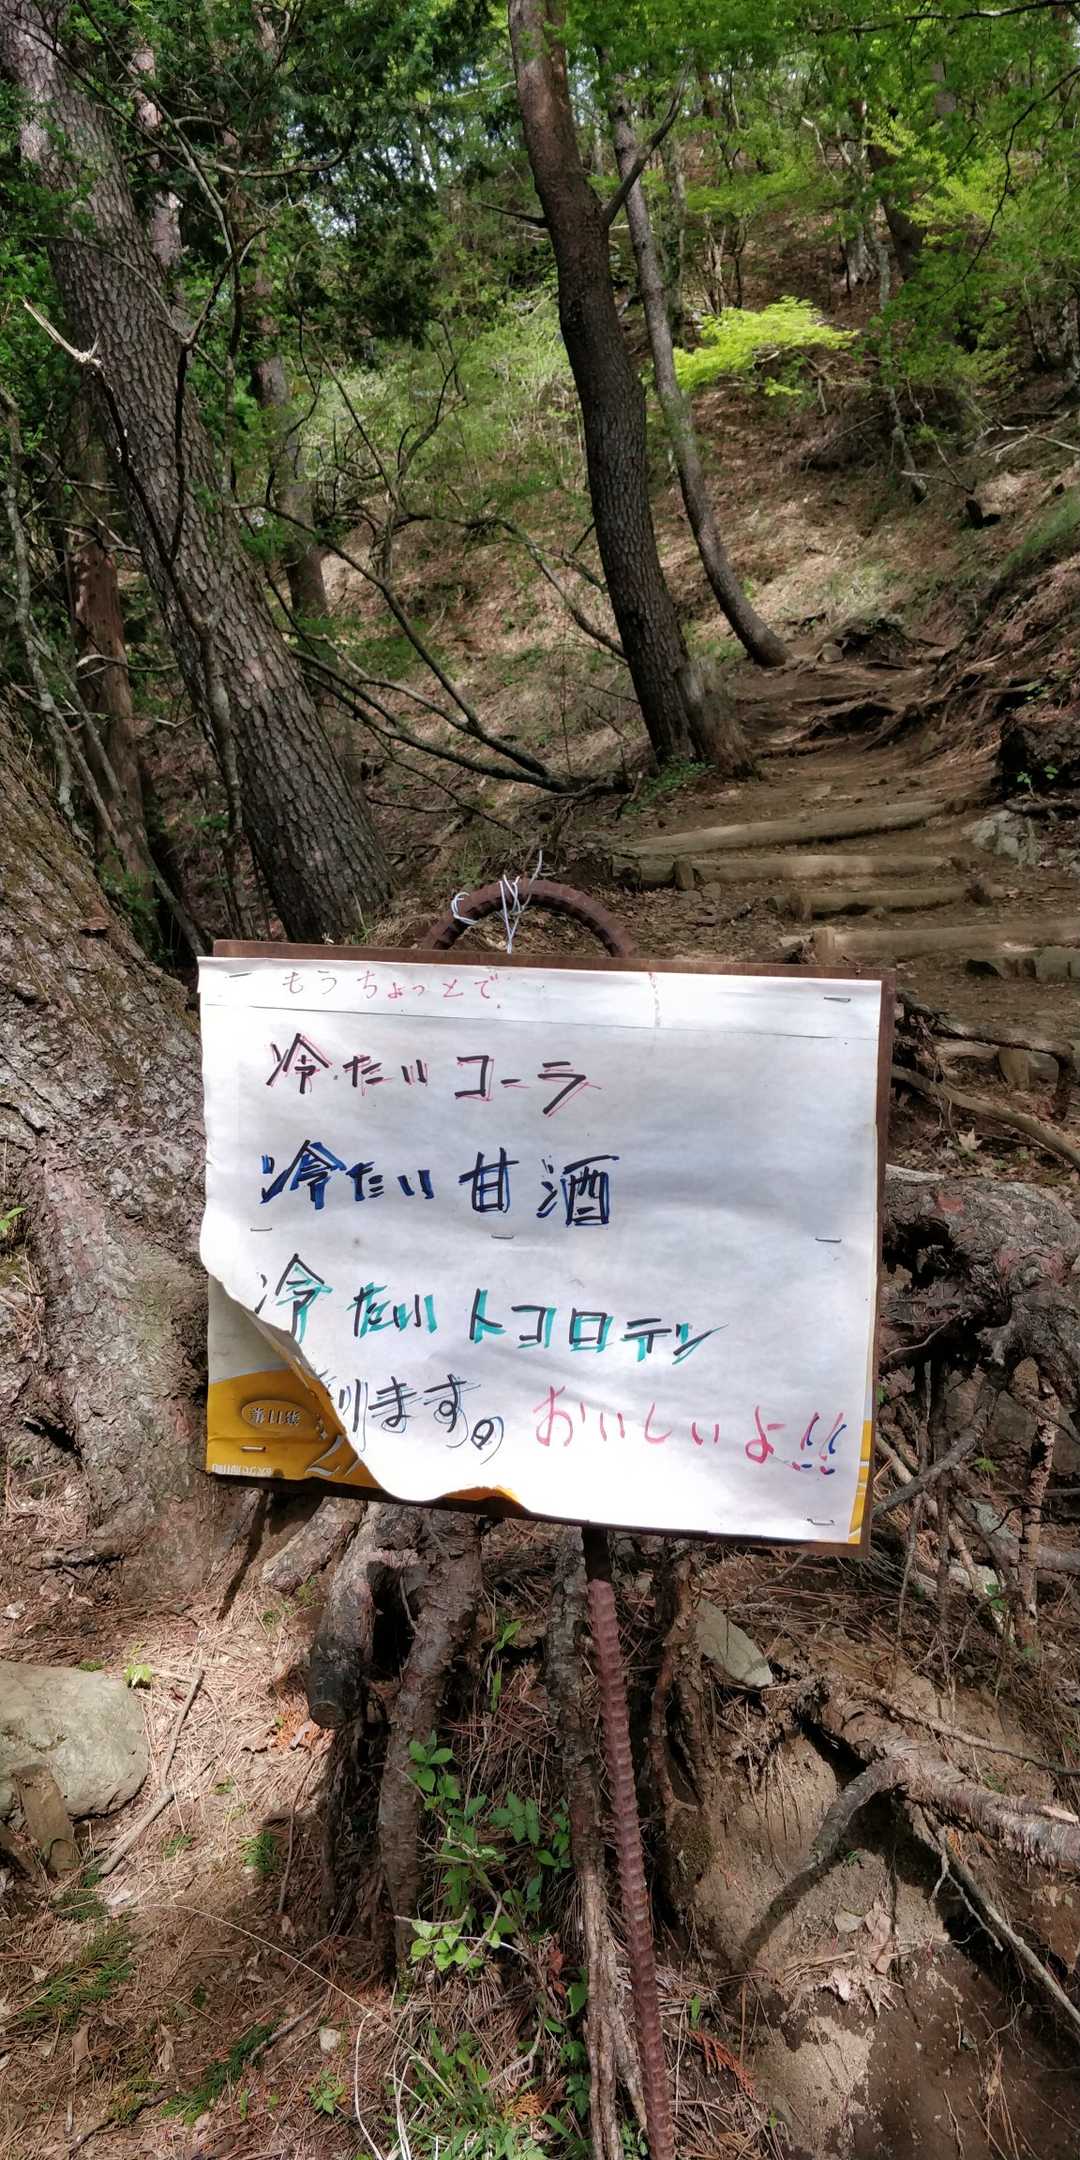 もうちょっとで
冷たいコーラ
冷たい甘酒
冷たいトコロテン
ります。おいしいよ!!